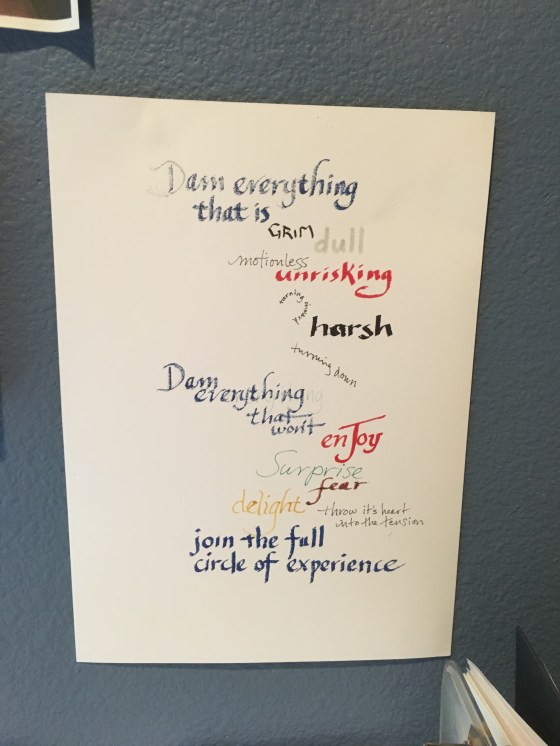 Dam everything
that is
GRIM dull
motionless
unrisking
turning
harsh
turning down
Dam
everything
that
won't
enJoy
Surprise
fear
delight
throw it's heart
into the tension
join the full
circle of experience